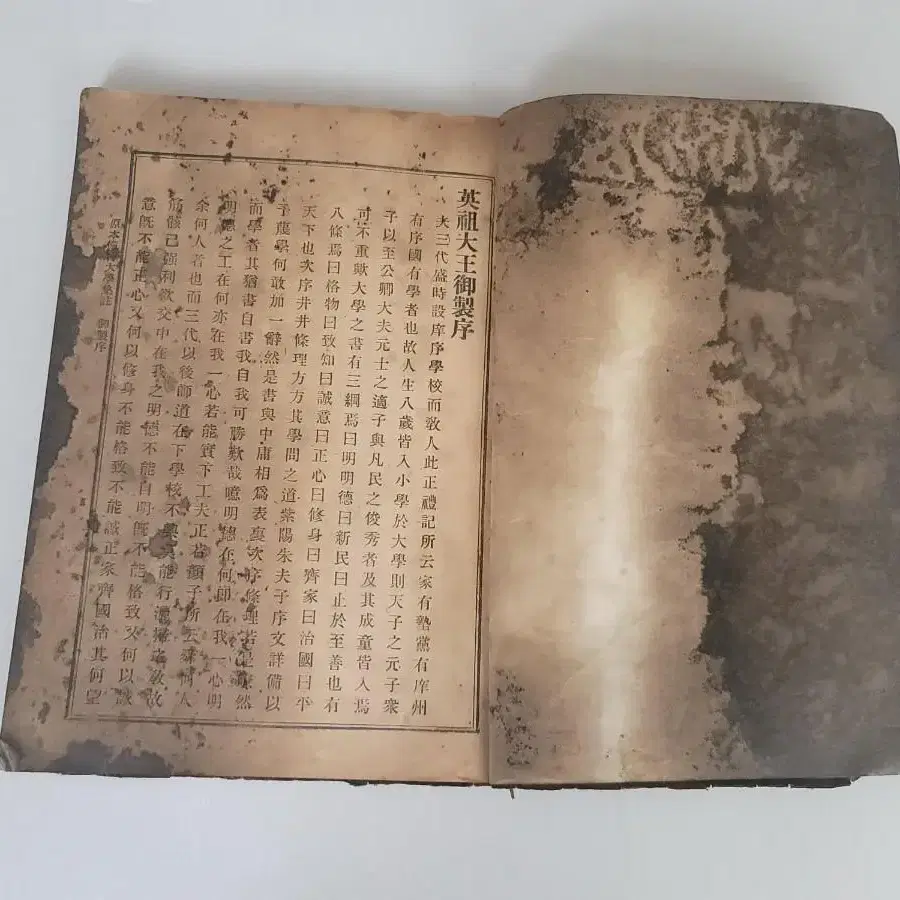 英祖大王御製序
夫三代盛時設庠序學校而敎人此正禮記所云家有塾黨有庠州
有序國有學者也故人生八歲皆入小學於大學則天子之元子衆
子以至公卿大夫元士之適子與凡民之俊秀者及其成童皆入焉
可不重歟大學之書有三綱焉曰明明德曰新民曰止於至善也有
八條焉曰格物曰致知曰誠意曰正心曰修身曰齊家曰治國曰平
天下也次序井井條理方方其學問之道紫陽朱夫子序文詳備以
予蔑學何敢加一辭然是書與中庸相爲表裏次序條理若是然
而學者其猶書自書我自我可勝歎哉噫明德在何卽在我一心明
明德之工在何亦在我一心若能實下工夫正若顔子所云舜何人
余何人者也而三代以後師道在下學校不興莫能行灑掃之敎故
筋骸已强利欲交中在我之明德不能自明旣不能格致又何以誠
意旣不能正心又何以修身不能格致不能誠正家齊國治其何望
原本大學集註 御製序